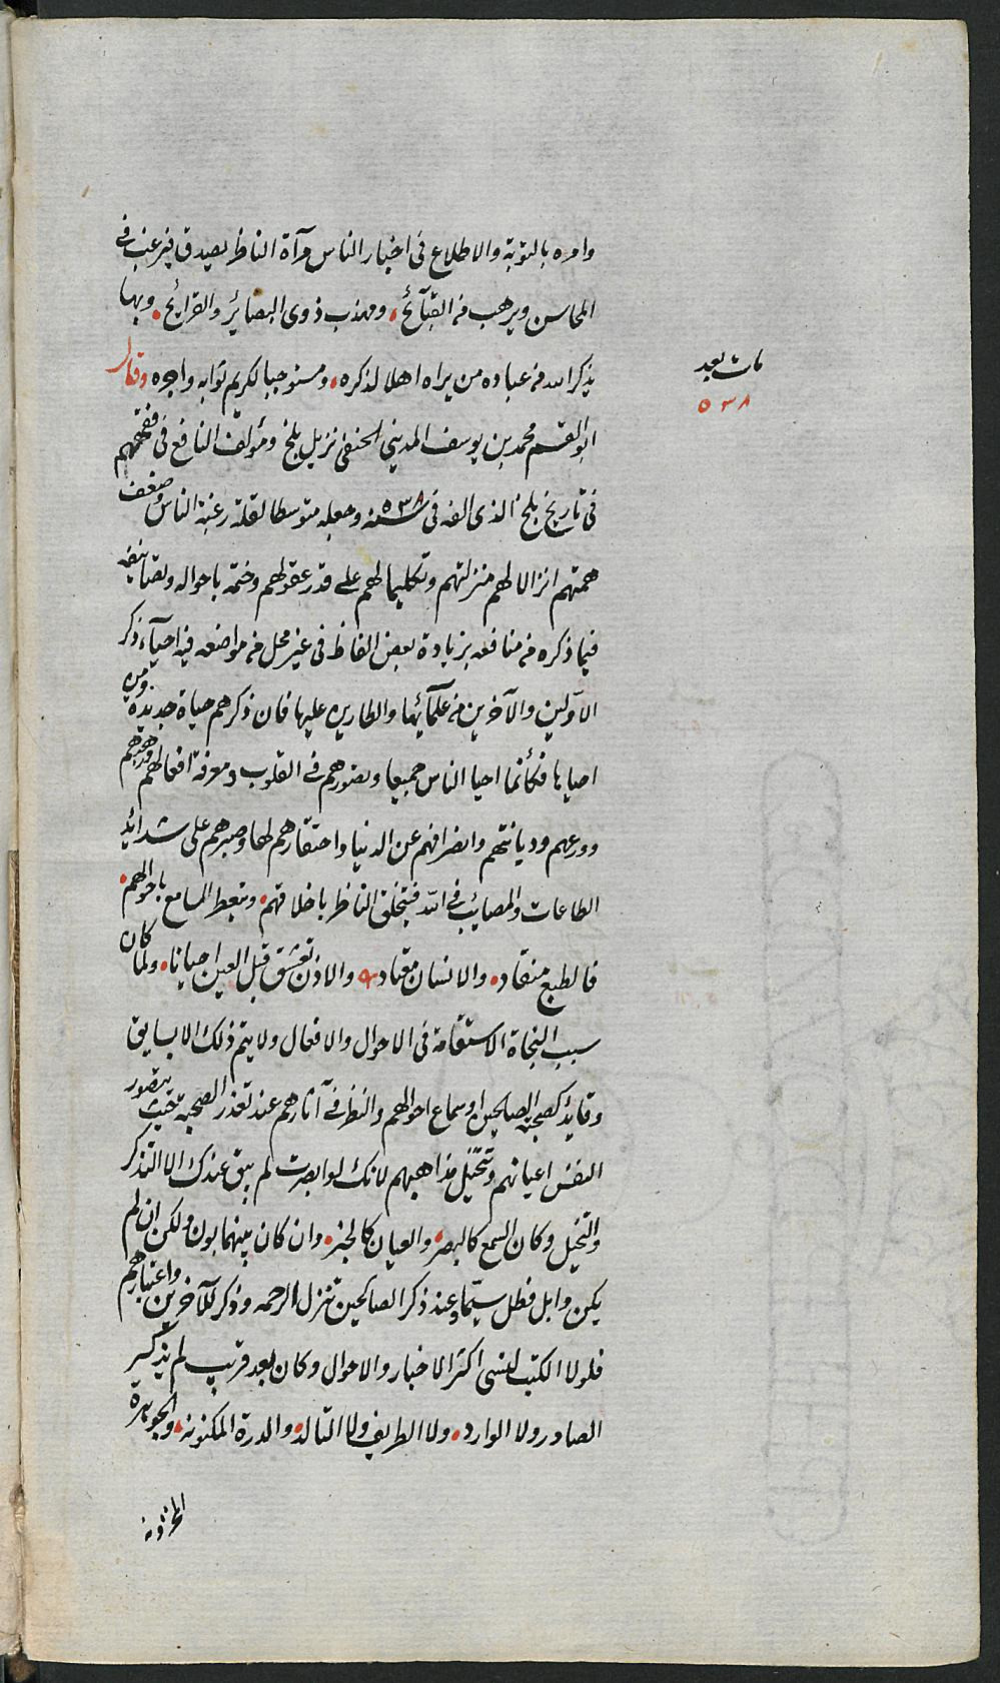 وامره بالتوبة والاطلاع فى اخبار الناس مرآة الناظر يصدق فيرغب فى
المحاسن ويرهب من القبآئح، ومهذب ذوى البصائر والقرائح. وبها
يذكر الله من عباده من يراه اهلا لذكره، ومستوجبا لكريم ثوابه واجره وقال
ابو القسم محمد بن يوسف المديني الحنفى نزيل بلخ ومؤلف النافع فى فقههم
فى تاريخ بلخ الذى الفه فى سنة ٥٣٨ وجعله متوسطا لقلة رغبة الناس وضعف
همتهم انزالا لهم منزلتهم وتكليما لهم على قدر عقولهم وختمه باحواله وتصانيفه
فيما ذكره من منافعه بزيادة بعض الفاظ فى غير محل من مواضعه فيه احيآء ذكر
الاولين والآخرين من علمآئها والطارين عليها فان ذكرهم حياة جديدة. ومن
احياها فكأنما احيا الناس جميعا وتصورهم فى القلوب ومعرفة افعالهم وزهدهم
وورعهم وديانتهم وانصرافهم عن الدنيا واحتقارهم لها وصبرهم على شدائد
الطاعات والمصائب فى الله فيتخلق الناظر باخلاقهم، ويتعظ السامع باحوالهم.
فالطبع منقاد، والانسان معتاد، والاذن تعشق قبل العين احيانا، ولما كان
سبب النجاة الاستقامة فى الاحوال والافعال ولا يتم ذلك الا بسايق
وقايد كصحبة الصالحين او سماع احوالهم والنظر فى آثارهم عند تعذر الصحبة حيث بتصور
النفس اعيانهم وتتخيل مذاهبهم لانك لو ابصرت لم يبق عندك الا التذكر
والتخيل وكان السمع كالبصر، والعيان كالخبر، وان كان بينهما بون ولكن ان لم
يكن وابل فطل سيّما وعند ذكر الصالحين تنزل الرحمه وذكر للآخرين واعتبارهم
فلولا الكتب لنسى اكثر الاخبار والاحوال وكان بعد قريب لم يذكر
الصادر ولا الوارد، ولا الطريف ولا التالد، والدرة المكنونه، والجوهرة
المخزونه
مات بعد
٥٣٨